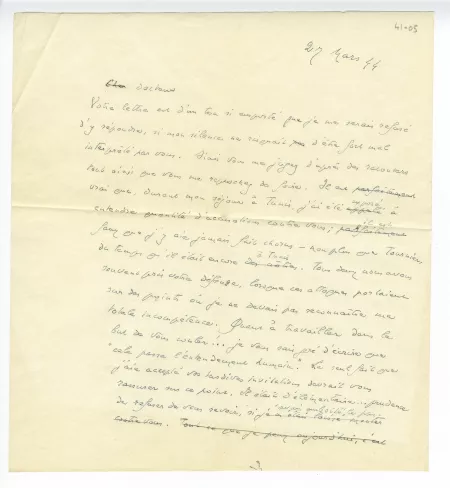 41-03
27 Mars 44
Cher docteur
Votre lettre est d'un ton si emporté que je me serais refusé
d'y répondre, si mon silence ne risquait pas d'être fort mal
interprété par vous. Ainsi vous me jugez d'après des racontars
tout ainsi que vous me reprochez de faire. Il est
vrai que, durant mon séjour à Tunis, j'ai été appelé à
entendre quantité d'accusations contre vous;
sans que j'y aie jamais fait chorus - non plus que Tournier,
du temps qu'il était encore à Tunis. Tous deux nous avons
souvent pris votre défense, lorsque ces attaques portaient
sur des points où je ne devais pas reconnaître ma
totale incompétence. Quant à travailler dans le
but de vous couler... je vous sais gré d'écrire que
"cela passe l'entendement humain". Le seul fait que
j'aie accepté vos tardives invitations devrait vous
rassurer sur ce point. Il était d'élémentaire prudence
de refuser de vous revoir, si je
contre vous. Tout ce que je puis aujourd'hui, c'est